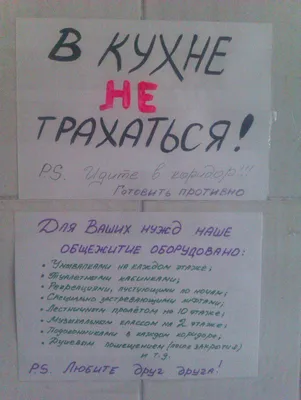 В КУХНЕ
НЕ
ТРАХАТЬСЯ!
PS. Идите в коридор!!!
Готовить противно
Для Ваших нужд наше
общежитие оборудовано:
• Умывалками на каждом этаже;
• Туалетными кабинками;
• Рекреациями, пустующими по ночам;
• Специально застревающими лифтами;
• Лестничным пролётом на 10 этаже;
• Музыкальным классом на 2 этаже;
• Подоконниками в каждом коридоре;
• Душевым помещением (после закрытия)
и т.д.
PS. Любите друг друга!